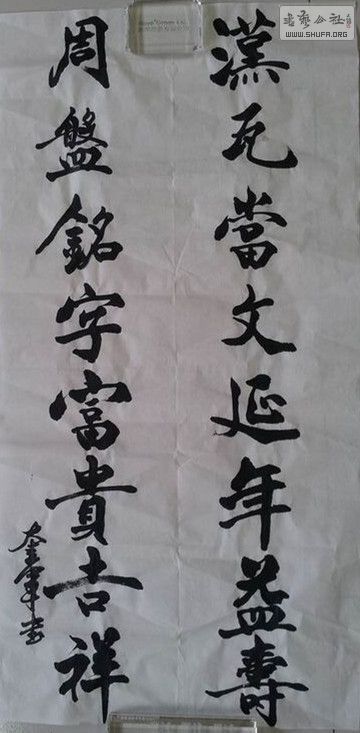 漢瓦當文延年益壽
周盤銘字富貴吉祥
書藝公社
WWW.SHUFA.ORG